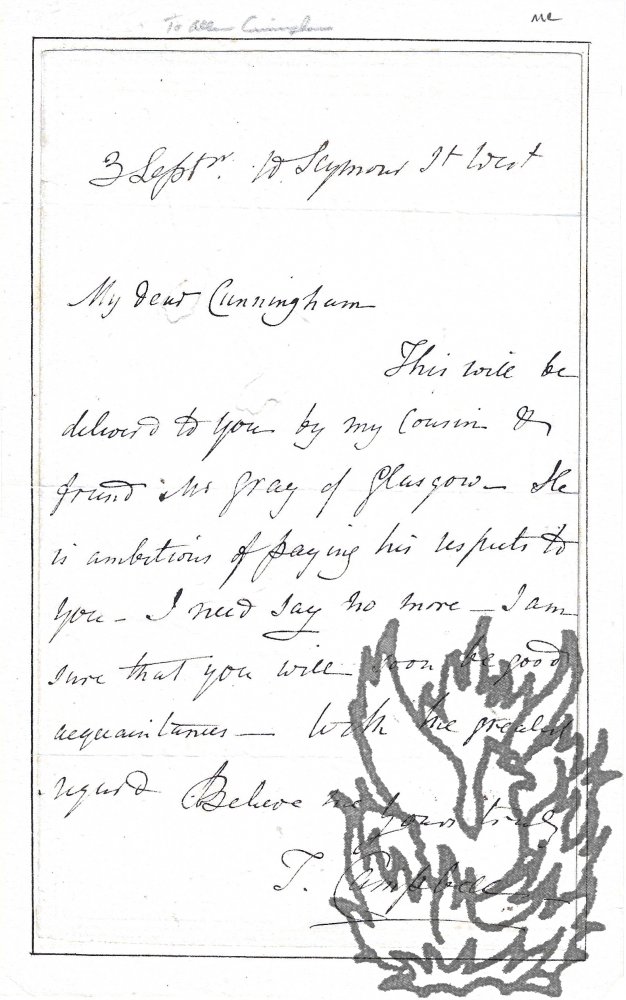 To Allan Cunningham
3 Septr. 10 Seymour St West
My dear Cunningham
This will be
deliverd to you by my Cousin &
friend Mr Gray of Glasgow – He
is ambitious of paying his respects to
you – I need say no more – I am
sure that you will soon be good
acquaintances – With the greatest
regard Believe me yours truly
T. Campbell